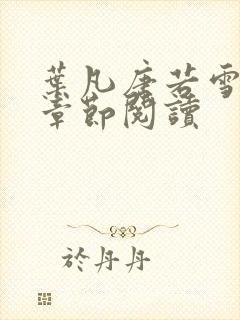 葉凡唐若雪
章節閱讀
於丹丹